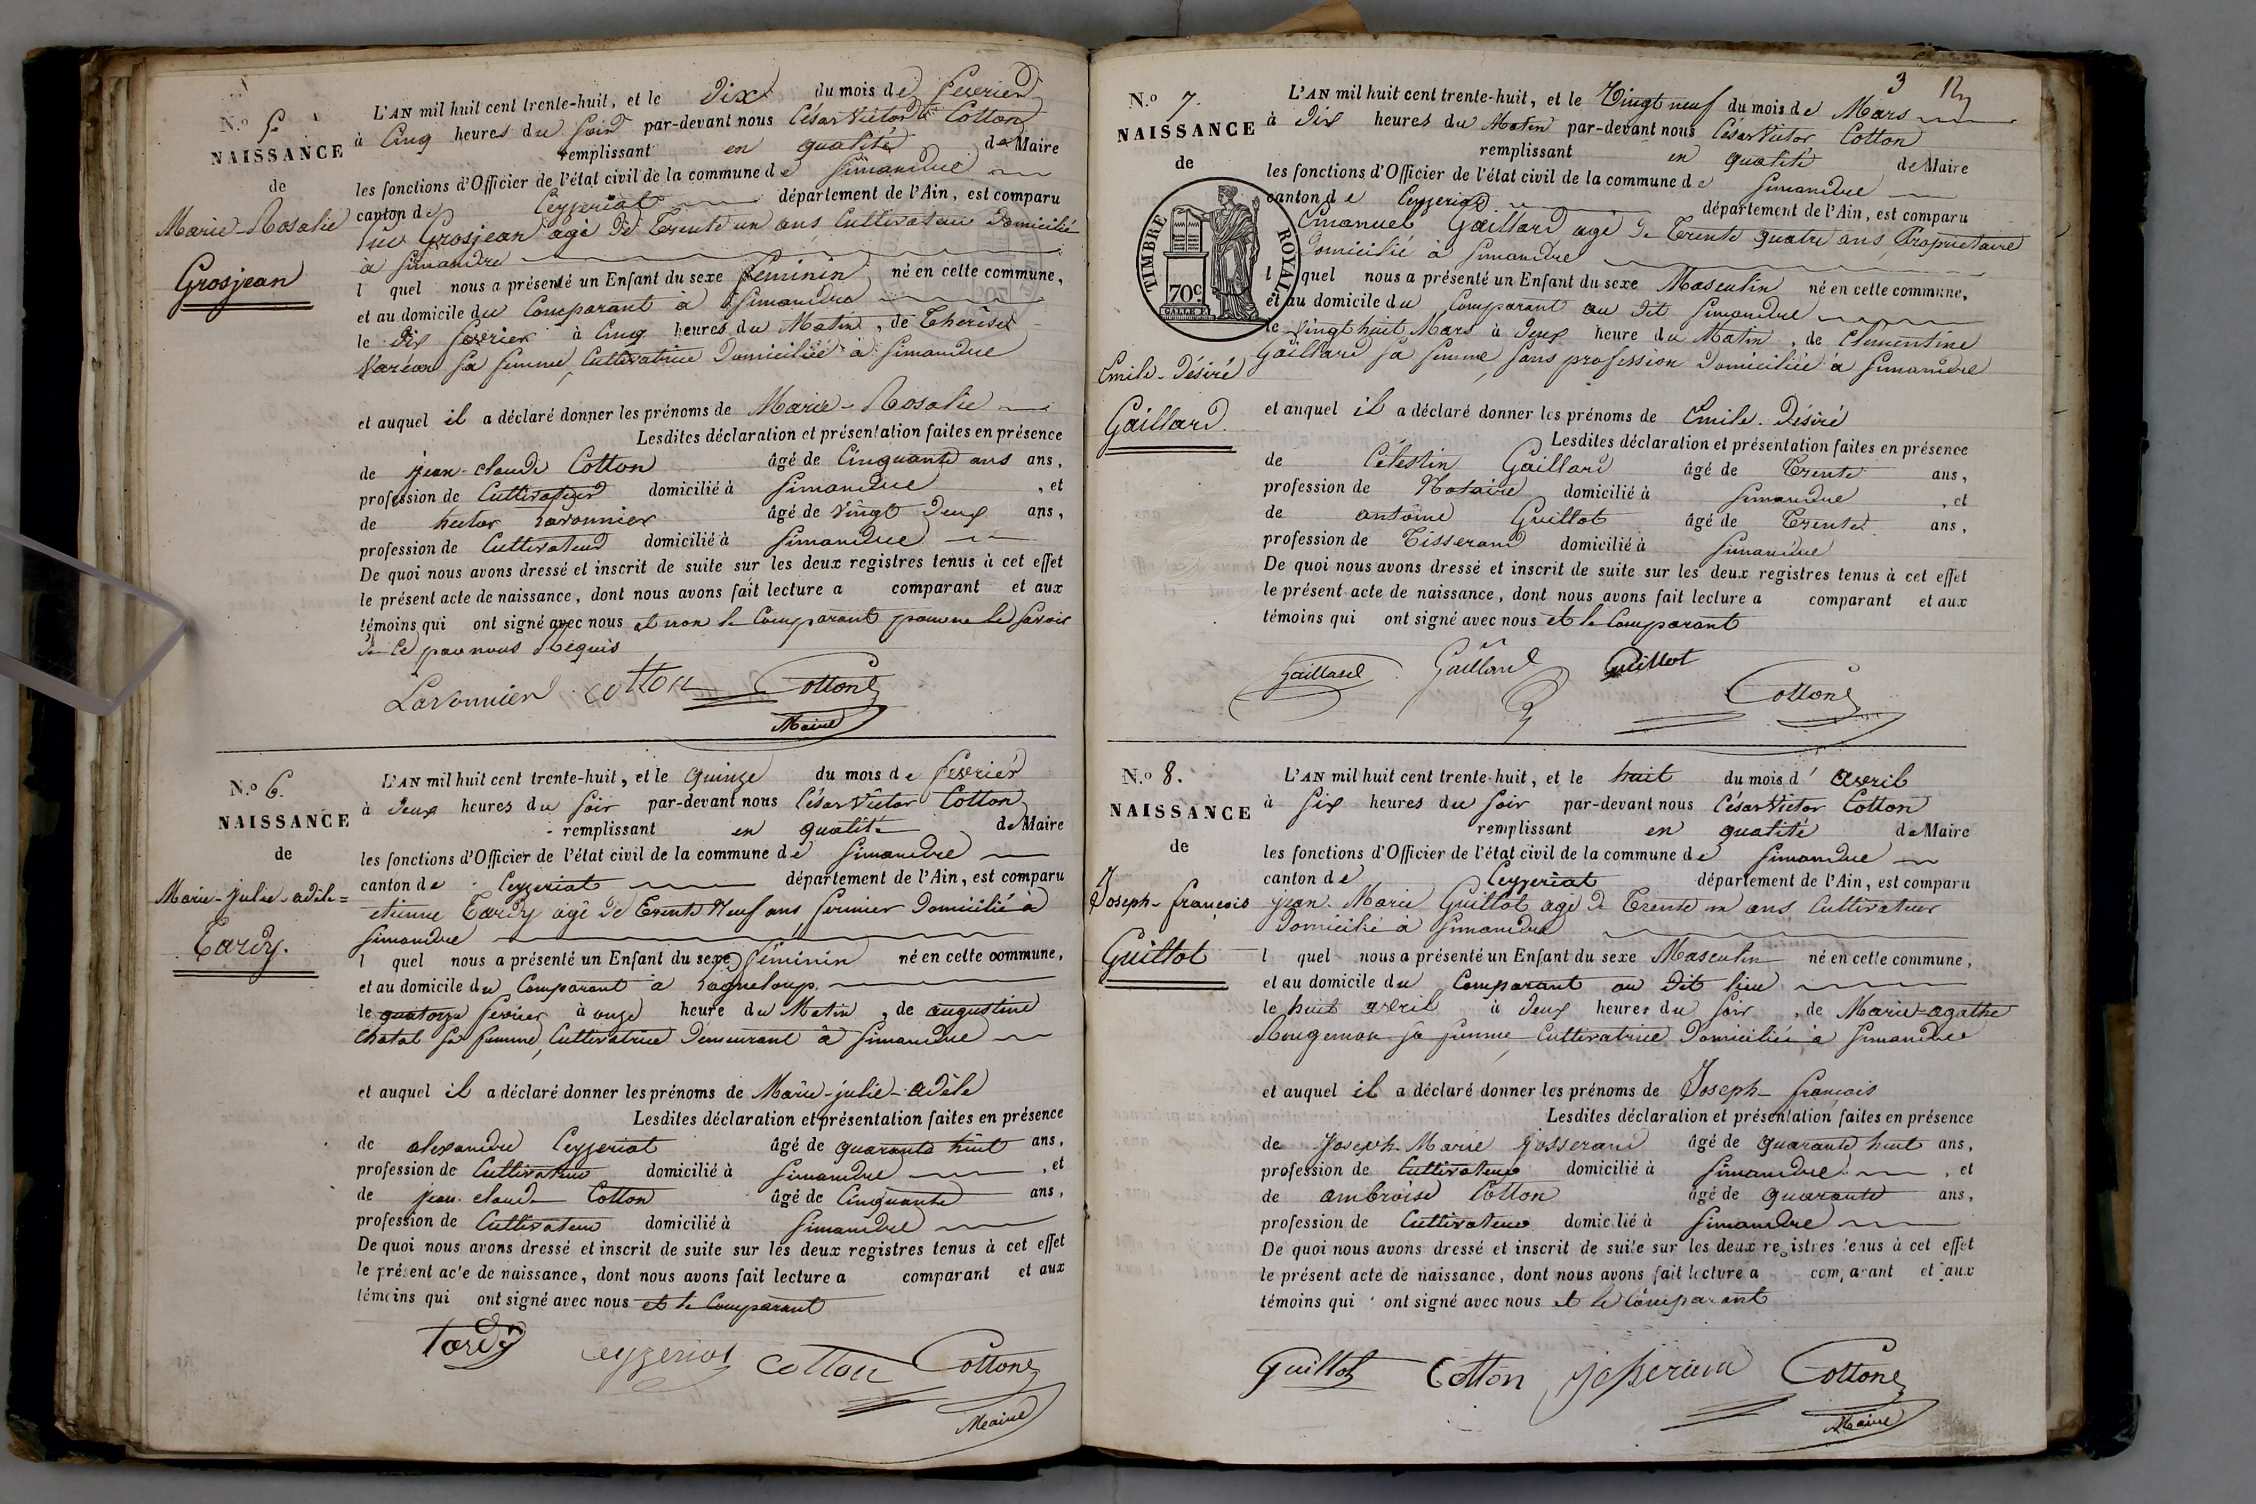 N.o 5.
NAISSANCE
de
Marie-Rosalie
Grosjean
L'AN mil huit cent trente-huit, et le Dix du mois de fevrier
à Cinq heures du Soir par-devant nous César Victor Cotton
remplissant en qualité de Maire
les fonctions d'Officier de l'état civil de la commune de Simandre
canton de Ceyzeriat département de l'Ain, est comparu
Luc Grosjean agé de Trente un ans, Cultivateur Domicilié
à Simandre
l quel nous a présenté un Enfant du sexe féminin né en cette commune,
et au domicile du Comparant à Simandre
le dix fevrier à Cinq heures du Matin, de Thérèse
sa femme, Cultivatrice Domiciliée à Simandre
et auquel il a déclaré donner les prénoms de Marie-Rosalie
Lesdites déclaration et présentation faites en présence
de jean-claude Cotton âgé de Cinquante ans ans,
profession de Cultivateur domicilié à Simandre, et
de hector Lavonnier âgé de vingt Deux ans,
profession de Cultivateur domicilié à Simandre
De quoi nous avons dressé et inscrit de suite sur les deux registres tenus à cet effet
le présent acte de naissance, dont nous avons fait lecture a comparant et aux
témoins qui ont signé avec nous et non le Comparant pour ne le Savoir
de ce par nous Requis
Lavonnier cotton Cotton
Maire
N.o 6.
NAISSANCE
de
Marie-julie-adèle=
Tardy.
L'AN mil huit cent trente-huit, et le quinze du mois de fevrier
à Deux heures du Soir par-devant nous César Victor Cotton
remplissant en qualité de Maire
les fonctions d'Officier de l'état civil de la commune de Simandre
canton de Ceyzeriat département de l'Ain, est comparu
etienne Tardy agé de Trente Neuf ans fermier Domicilié à
Simandre
l quel nous a présenté un Enfant du sexe féminin né en cette commune,
et au domicile du Comparant à ragneloup.
le quatorze fevrier à onze heure du Matin, de augustine
Chatal sa femme, Cultivatrice Demeurant à Simandre
et auquel il a déclaré donner les prénoms de Marie-julie-adèle
Lesdites déclaration et présentation faites en présence
de alexandre Ceyzeriat âgé de quarante huit ans,
profession de Cultivateur domicilié à Simandre, et
de jean-claude Cotton âgé de Cinquante ans,
profession de Cultivateur domicilié à Simandre
De quoi nous avons dressé et inscrit de suite sur les deux registres tenus à cet effet
le présent acte de naissance, dont nous avons fait lecture a comparant et aux
témoins qui ont signé avec nous et le Comparant
Tardy ceyzeriat cotton Cotton
Maire
3
N.o 7.
NAISSANCE
de
TIMBRE ROYAL
70c
Emile-Désiré
Gaillard.
L'AN mil huit cent trente-huit, et le Vingt neuf du mois de Mars
à Dix heures du Matin par-devant nous César Victor Cotton
remplissant en qualité de Maire
les fonctions d'Officier de l'état civil de la commune de Simandre
canton de Ceyzeriat département de l'Ain, est comparu
Emanuel Gaillard agé de Trente quatre ans, Propriétaire
Domicilié à Simandre
l quel nous a présenté un Enfant du sexe Masculin né en cette commune,
et au domicile du Comparant au dit Simandre
le Vingt huit Mars à Deux heure du Matin, de Clementine
Gaillard sa femme, sans profession Domiciliée à Simandre
et auquel il a déclaré donner les prénoms de Emile-Désiré
Lesdites déclaration et présentation faites en présence
de Célestin Gaillard âgé de Trente ans,
profession de Notaire domicilié à Simandre, et
de antoine Guillot âgé de Trente ans,
profession de Tisserand domicilié à Simandre
De quoi nous avons dressé et inscrit de suite sur les deux registres tenus à cet effet
le présent acte de naissance, dont nous avons fait lecture a comparant et aux
témoins qui ont signé avec nous et le Comparant
Gaillard Gaillard Guillot
Cotton
N.o 8.
NAISSANCE
de
Joseph-françois
Guillot
L'AN mil huit cent trente-huit, et le huit du mois d' avril
à Six heures du Soir par-devant nous César Victor Cotton
remplissant en qualité de Maire
les fonctions d'Officier de l'état civil de la commune de Simandre
canton de Ceyzeriat département de l'Ain, est comparu
jean Marie Guillot agé de Trente un ans, Cultivateur
Domicilié à Simandre
l quel nous a présenté un Enfant du sexe Masculin né en cette commune,
et au domicile du Comparant au dit lieu
le huit avril à Deux heures du Soir, de Marie-agathe
Rougemon sa femme Cultivatrice Domiciliée à Simandre
et auquel il a déclaré donner les prénoms de Joseph-françois
Lesdites déclaration et présentation faites en présence
de Joseph-Marie Josserand âgé de quarante huit ans,
profession de Cultivateur domicilié à Simandre, et
de ambroise Cotton âgé de quarante ans,
profession de Cultivateur domicilié à Simandre
De quoi nous avons dressé et inscrit de suite sur les deux registres tenus à cet effet
le présent acte de naissance, dont nous avons fait lecture a comparant et aux
témoins qui ont signé avec nous et le Comparant
Guillot Cotton josserand Cotton
Maire